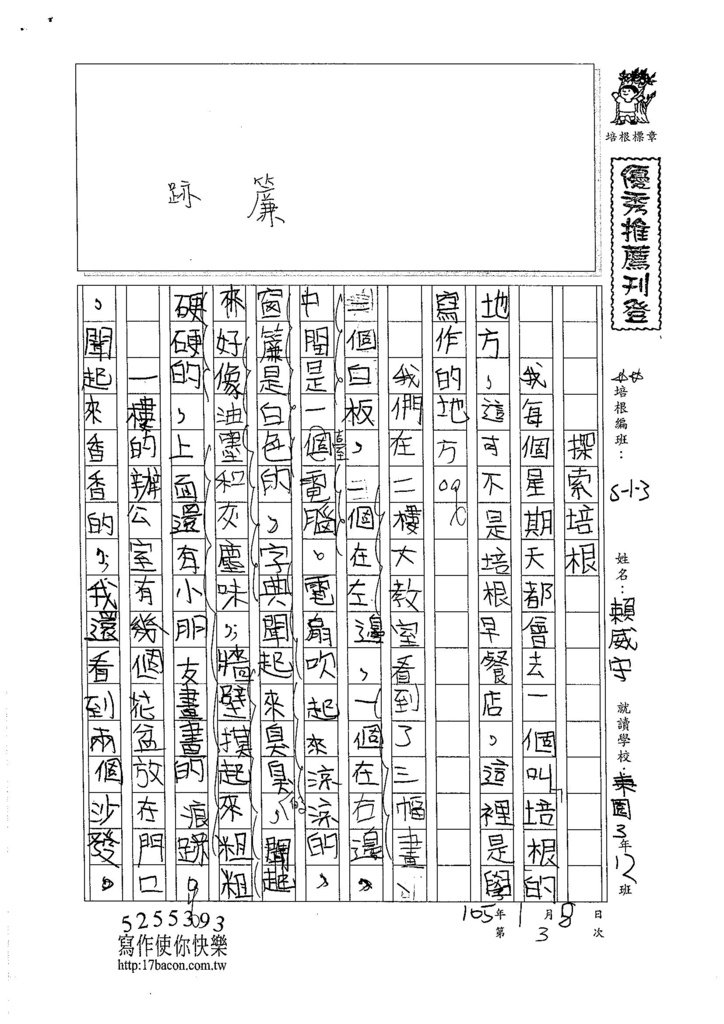 培根標章
優秀推薦刊登
培根編班：S-1-3
姓名：賴威守
就讀學校：東園3年12班
105年1月8日
第3次
簾
跡
探索培根
我每個星期天都會去一個叫培根的
地方，這可不是培根早餐店，這裡是學
寫作的地方。
我們在二樓大教室看到了三幅畫、
三個白板，二個在左邊，一個在右邊，
中間是一臺電腦。電扇吹起來涼涼的，
窗簾是白色的，字典聞起來臭臭，聞起
來好像油墨和灰塵味，牆壁摸起來粗粗
硬硬的，上面還有小朋友畫畫的痕跡。
一樓的辦公室有幾個花盆放在門口
，聞起來香香的，我還看到兩個沙發。
52553093
寫作使你快樂
http:17bacon.com.tw